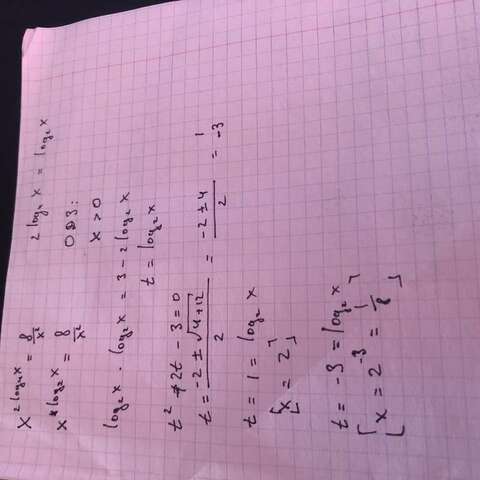 x^{2 log₄ x} = 8/x²
2 log₄ x = log₂ x
x^{log₂ x} = 8/x²
ОДЗ:
x > 0
log₂ x · log₂ x = 3 - 2 log₂ x
t = log₂ x
t² + 2t - 3 = 0
t = (-2 ± √(4+12))/2 = (-2 ± 4)/2 = 1 -3
t = 1 = log₂ x
[x = 2]
t = -3 = log₂ x
[x = 2⁻³ = 1/8]